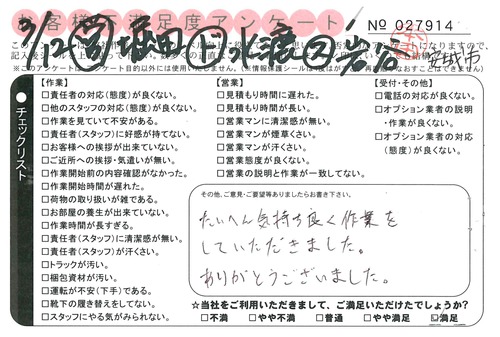 お客様不満足度アンケート
No 027914
3/12 堀田 水渡 岩谷
安城市
チェックリスト
【作業】
□責任者の対応(態度)が良くない。
□他のスタッフの対応(態度)が良くない。
□作業を見ていて不安がある。
□責任者(スタッフ)に好感が持てない。
□お客様への挨拶が出来ていない。
□ご近所への挨拶・気遣いが無い。
□作業開始前の内容確認がなかった。
□作業開始時間が遅れた。
□荷物の取り扱いが雑である。
□お部屋の養生が出来ていない。
□作業時間が長すぎる。
□責任者(スタッフ)に清潔感が無い。
□責任者(スタッフ)が汗くさい。
□トラックが汚い。
□梱包資材が汚い。
□運転が不安(下手)である。
□靴下の履き替えをしてない。
□スタッフにやる気がみられない。
【営業】
□見積もり時間に遅れた。
□見積もり時間が長い。
□営業マンに清潔感が無い。
□営業マンが煙草くさい。
□営業マンが汗くさい。
□営業態度が良くない。
□営業の説明と作業が一致してない。
【受付・その他】
□電話の対応が良くない。
□オプション業者の説明
・作業が良くない。
□オプション業者の対応
(態度)が良くない。
その他、ご意見・ご要望等ありましたらお書き下さい。
たいへん気持ち良く作業を
していただきました。
ありがとうございました。
☆当社をご利用いただきまして、ご満足いただけたでしょうか?
□不満 □やや不満 □普通 □やや満足 ☑満足